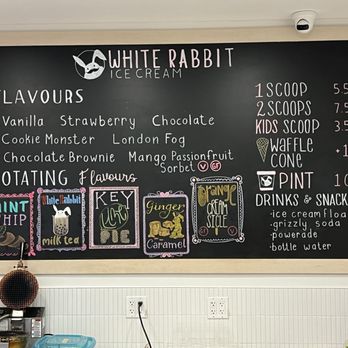 WHITE RABBIT
ICE CREAM
FLAVOURS
Vanilla Strawberry Chocolate
Cookie Monster London Fog
Chocolate Brownie Mango Passionfruit
Sorbet V GF
ROTATING Flavours
MINT
CHIP
White Rabbit
milk tea
KEY
LIME
PIE
Ginger
Caramel
Orange
CREAM
SICLE
GF V
1 SCOOP 5.5
2 SCOOPS 7.5
KIDS SCOOP 3.5
WAFFLE
CONE
PINT
DRINKS & SNACK
- ice cream float
- grizzly soda
- powerade
- bottle water